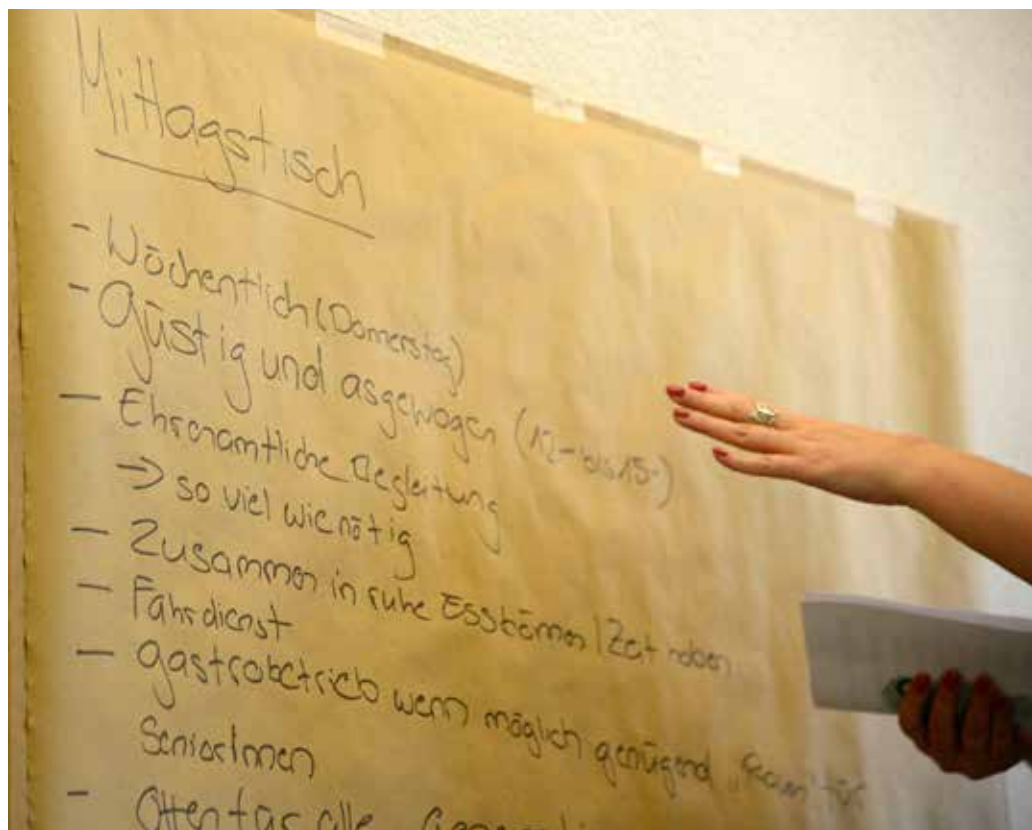 Mittagstisch
- Wöchentlich (Donnerstag)
- Güstig und asgewogen (12.- bis 15.-)
- Ehrenamtliche Begleitung
→ so viel wie nötig
- Zusammen in ruhe Esskönnen / Zeit haben
- Fahrdienst
- Gastrobetrieb wenn möglich genügend „Raum" für
SeniorInnen
- Offen für alle